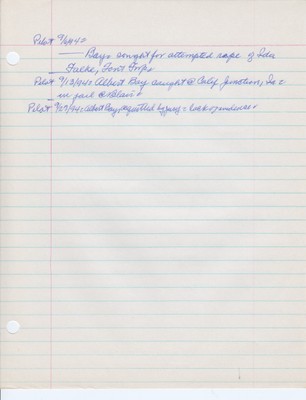 Pilot 9/6/44=
Bay= sought for attempted rape of Ida
Falke, Font Twp=
Pilot 9/13/44= Albert Bay caught @ Calif Junction, Ia &
in jail @ Blair=
Pilot 9/27/44= Albert Bay, by jury= lack of evidence=